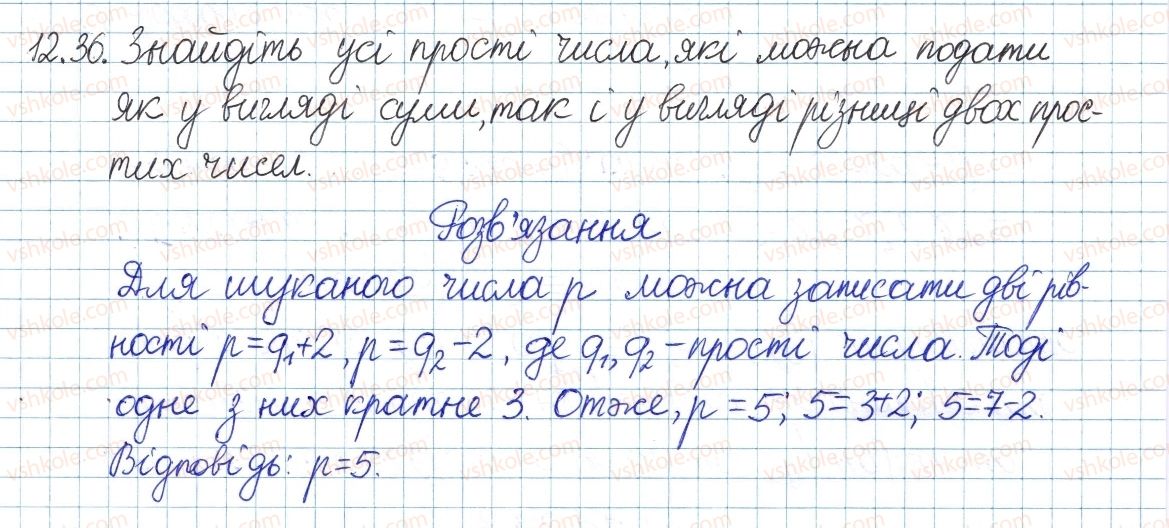 12.36. Знайдіть усі прості числа, які можна подати
як у вигляді суми, так і у вигляді різниці двох прос-
тих чисел.
Розв'язання
Для шуканого числа p можна записати дві рів-
ності p = q₁+2, p = q₂-2, де q₁, q₂ - прості числа. Тоді
одне з них кратне 3. Отже, p = 5; 5=3+2; 5=7-2.
Відповідь: p=5.